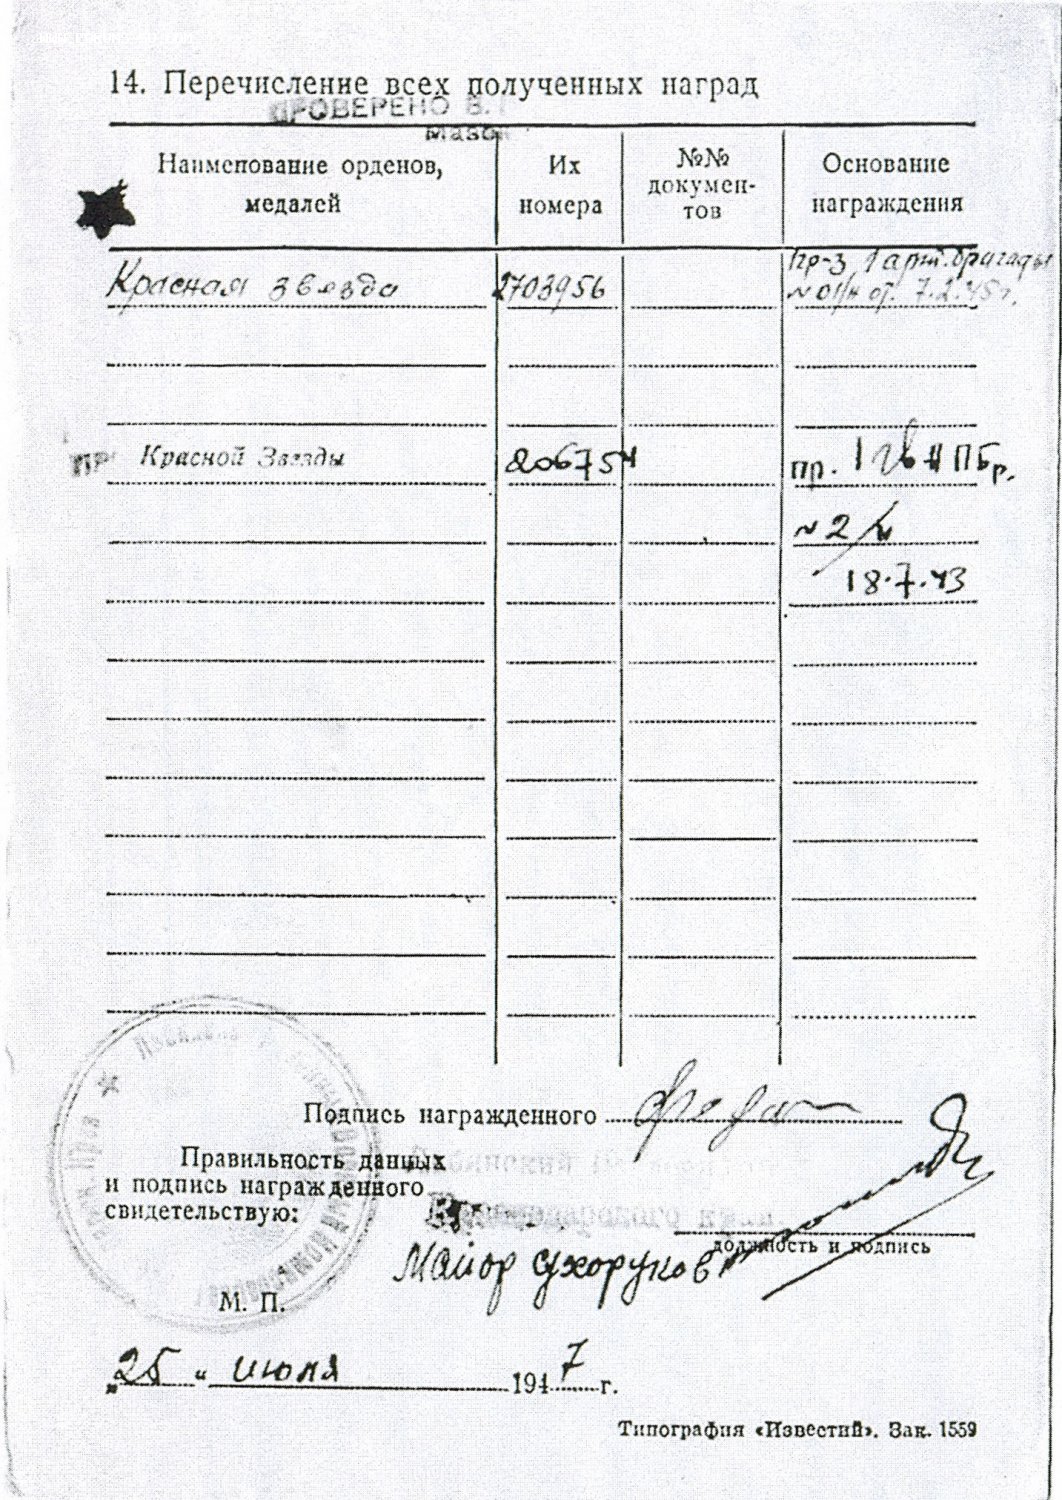 14. Перечисление всех полученных наград
ПРОВЕРЕНО
Наименование орденов, медалей
Их номера
№№ докумен-тов
Основание награждения
Красная звезда 2703956 Пр-з 1 арт. бригады
№ 01/н от. 7.2.45 г.
Красной Звезды 206754 пр. 1 гв ПБр.
№ 2/н
18.7.43
Подпись награжденного
Правильность данных
и подпись награжденного
свидетельствую:
должность и подпись
Майор Сухоруков
М. П.
„25 “ июля 1947 г.
Типография «Известий». Зак. 1559